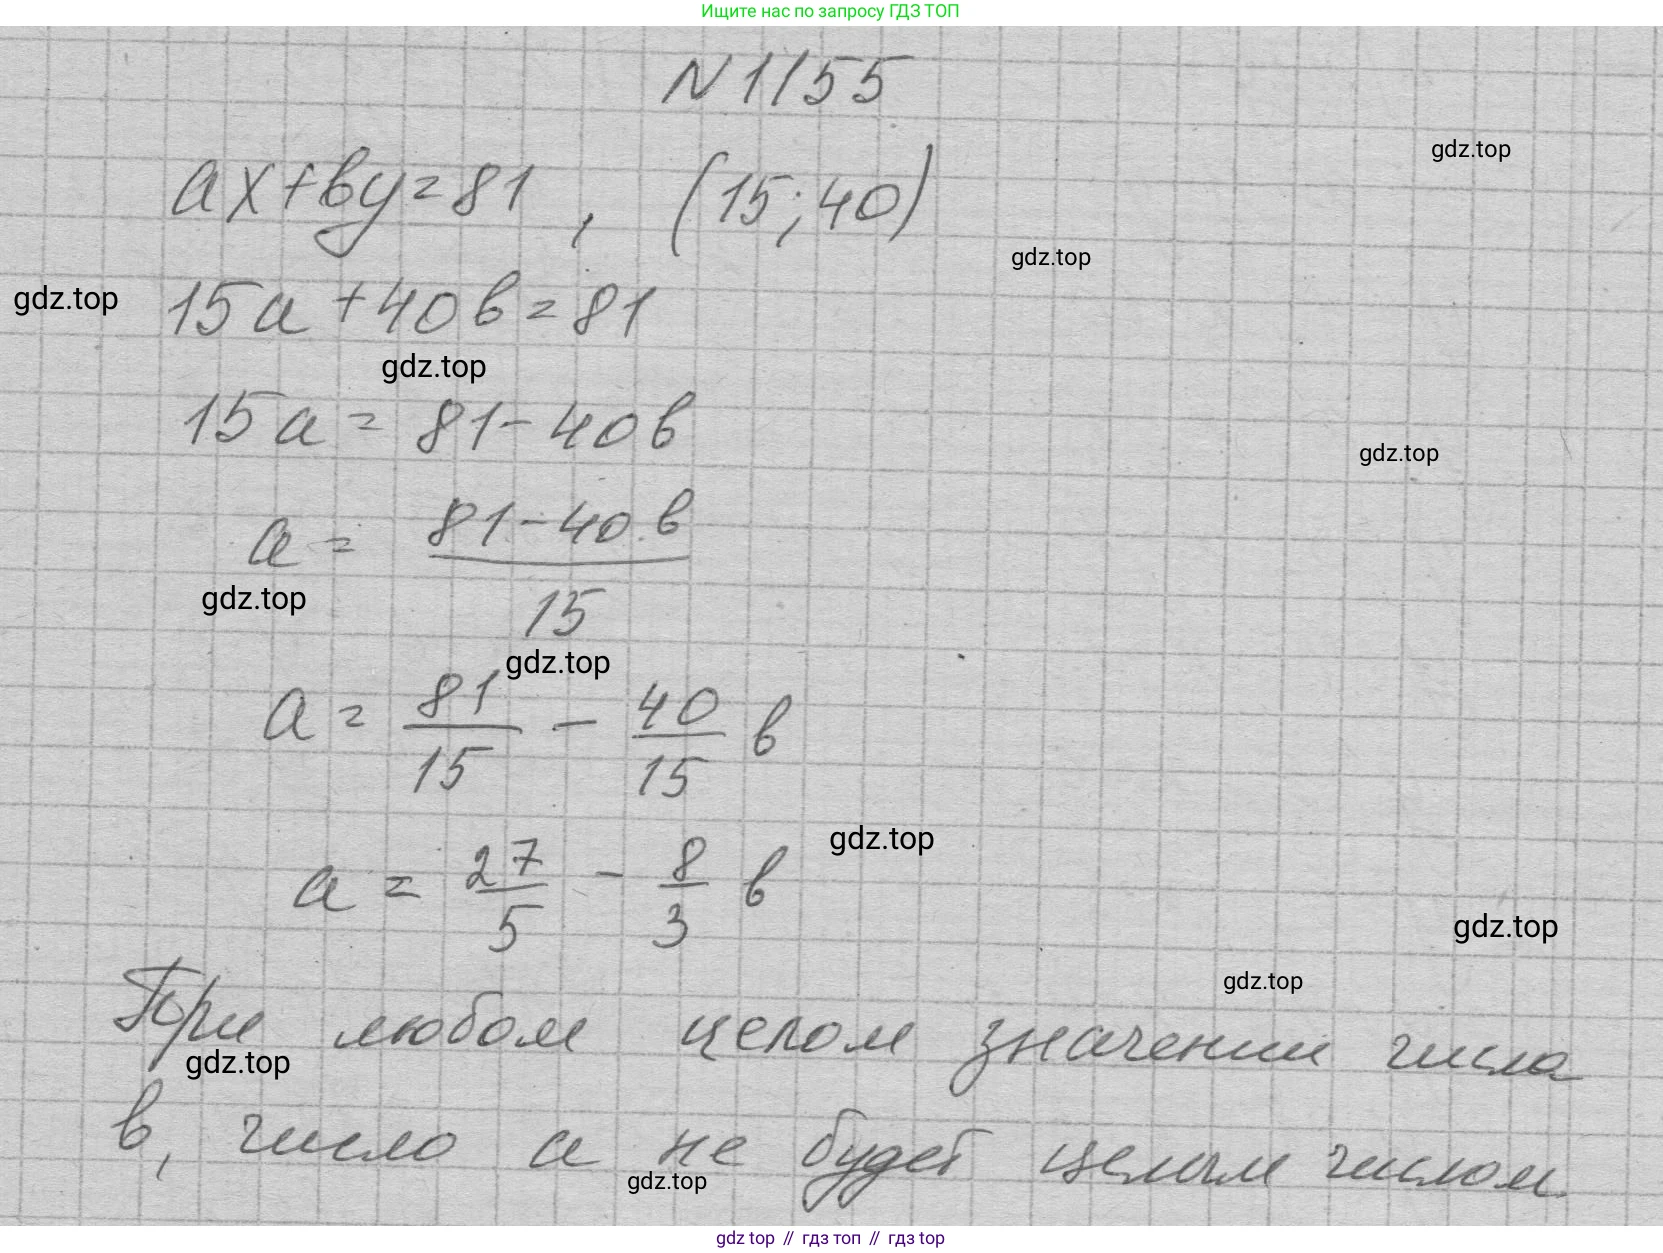 Ищите нас по запросу ГДЗ ТОП
N 1155
gdz.top
ax+by=81, (15;40)
gdz.top
gdz.top
15a+40b=81
gdz.top
15a=81-40b
gdz.top
a = \frac{81-40b}{15}
gdz.top
gdz.top
a = \frac{81}{15} - \frac{40}{15} b
gdz.top
a = \frac{27}{5} - \frac{8}{3} b
gdz.top
gdz.top
При любом целом значении числа
gdz.top
b, число a не будет целым числом.
gdz.top
gdz top // гдз топ // гдз top